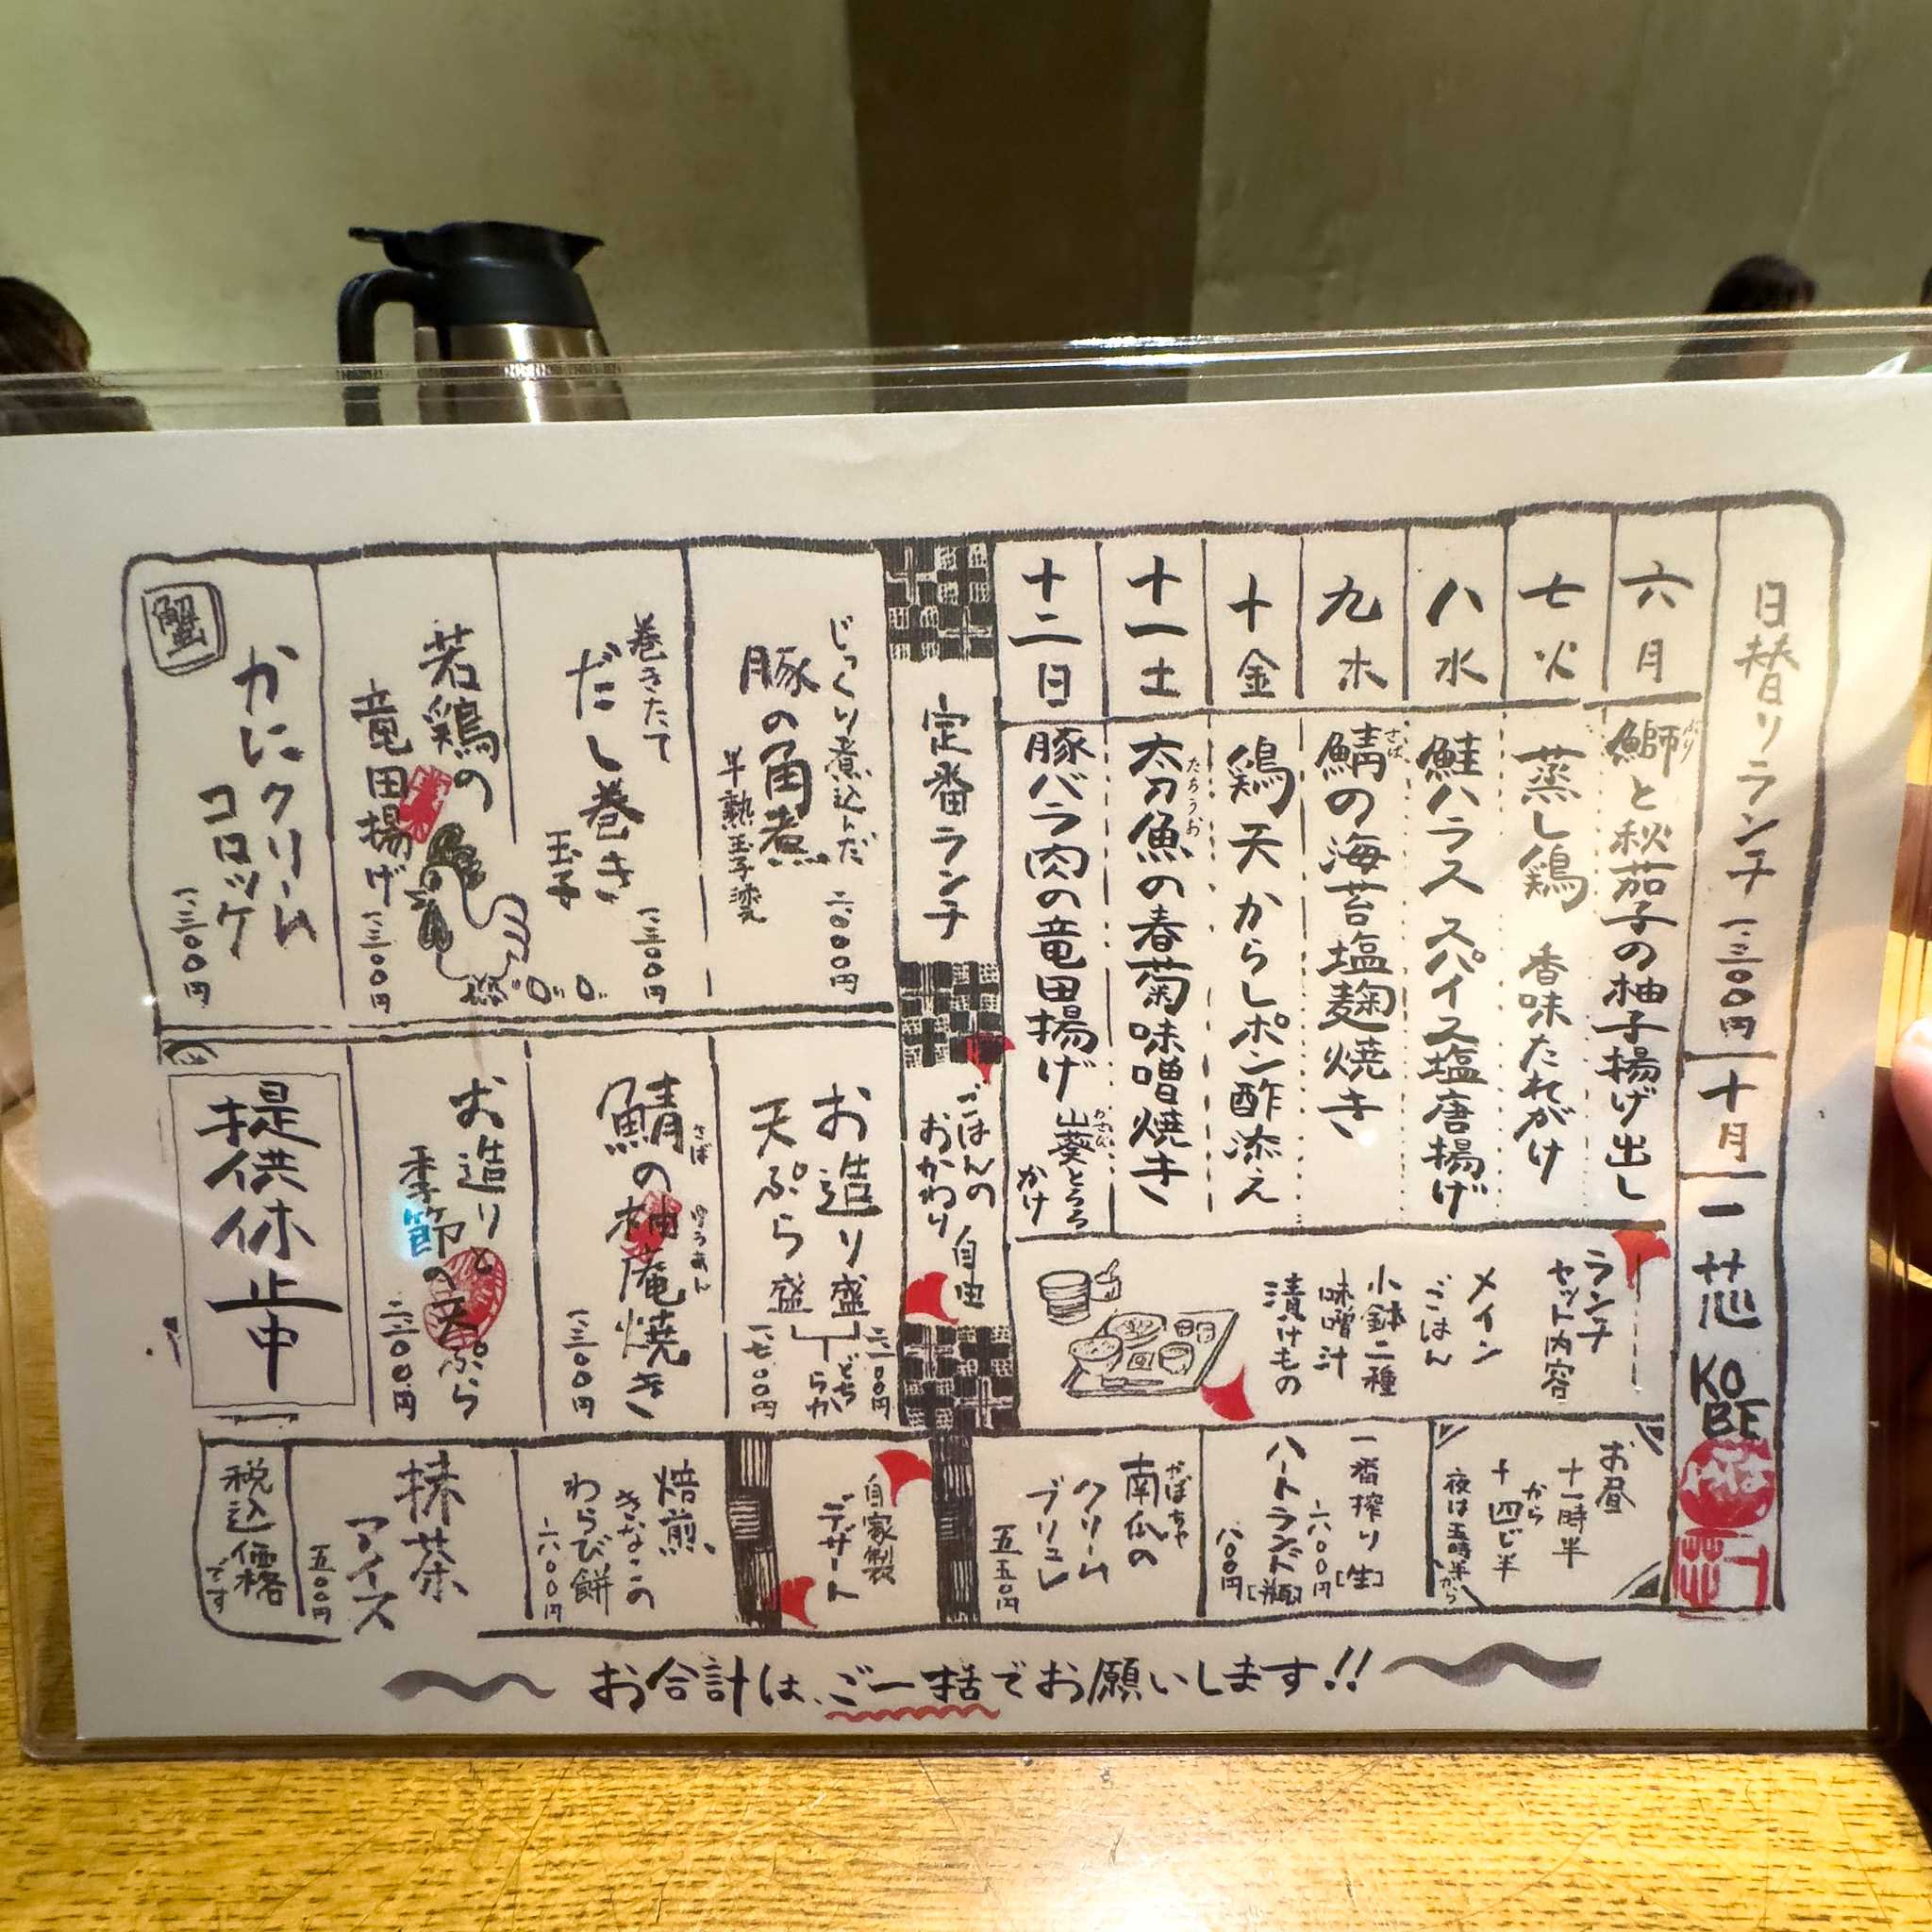 日替りランチ 一、三〇〇円
十月
一芯
KO
BE
六 月
鰤と秋茄子の柚子揚げ出し
ぶり
七 火
蒸し鶏 香味たれがけ
八 水
鮭ハラス スパイス塩唐揚げ
九 木
鯖の海苔塩麹焼き
さば
十 金
鶏天 からしポン酢添え
十一 土
太刀魚の春菊味噌焼き
たちうお
十二 日
豚バラ肉の竜田揚げ 山葵とろろ
かけ
ランチ
セット内容
メイン
ごはん
小鉢二種
味噌汁
漬けもの
お昼
十一時半
から
十四じ半
夜は五時半から
一番搾り[生]
六〇〇円
ハートランド[瓶]
八〇〇円
かぼちゃ
南瓜の
クリーム
ブリュレ
五五〇円
定番ランチ
ごはんの
おかわり
自由
じっくり煮込んだ
豚の角煮
半熟玉子添え
二、〇〇〇円
巻きたて
だし巻き
玉子
一、三〇〇円
若鶏の
竜田揚げ
一、三〇〇円
蟹
かにクリーム
コロッケ
一、三〇〇円
お造り盛
二、二〇〇円
天ぷら盛
一、七〇〇円
どちらか
さば ゆうあん
鯖の柚庵焼き
一、三〇〇円
お造りと
季節の天ぷら
二、二〇〇円
提供休止中
自家製
デザート
焙煎
きなこの
わらび餅
六〇〇円
抹茶
アイス
五〇〇円
税込価格
です
お合計は、ご一括でお願いします!!